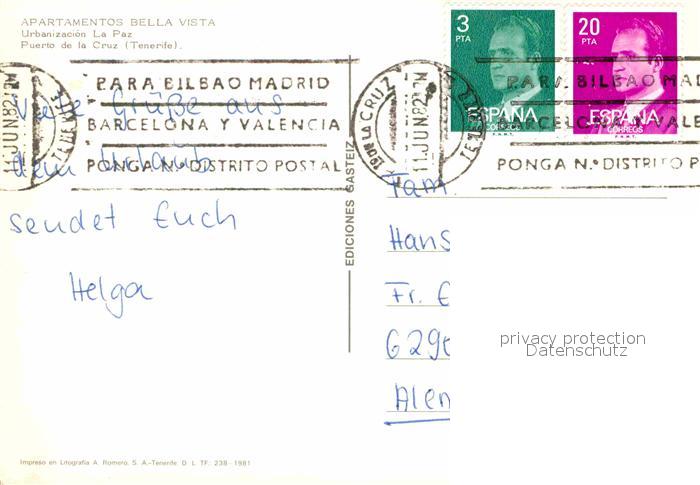 APARTAMENTOS BELLA VISTA
Urbanización La Paz
Puerto de la Cruz (Tenerife).
3
PTA
ESPAÑA
CORREOS
F.N.M.T.
20
PTA
ESPAÑA
CORREOS
F.N.M.T.
PARA BILBAO MADRID
BARCELONA Y VALENCIA
PONGA N.º DISTRITO POSTAL
11 JUN 82
TENERIFE
DE LA CRUZ
11 JUN 82
PARA BILBAO MAD
BARCELONA Y VALE
PONGA N.º DISTRITO P
Viele Grüße aus
dem Urlaub
sendet Euch
Helga
EDICIONES GASTEIZ
Fam.
Hans
Fr.
629
Alem
privacy protection
Datenschutz
Impreso en Litografía A. Romero, S. A.-Tenerife D. L. TF. 238 - 1981